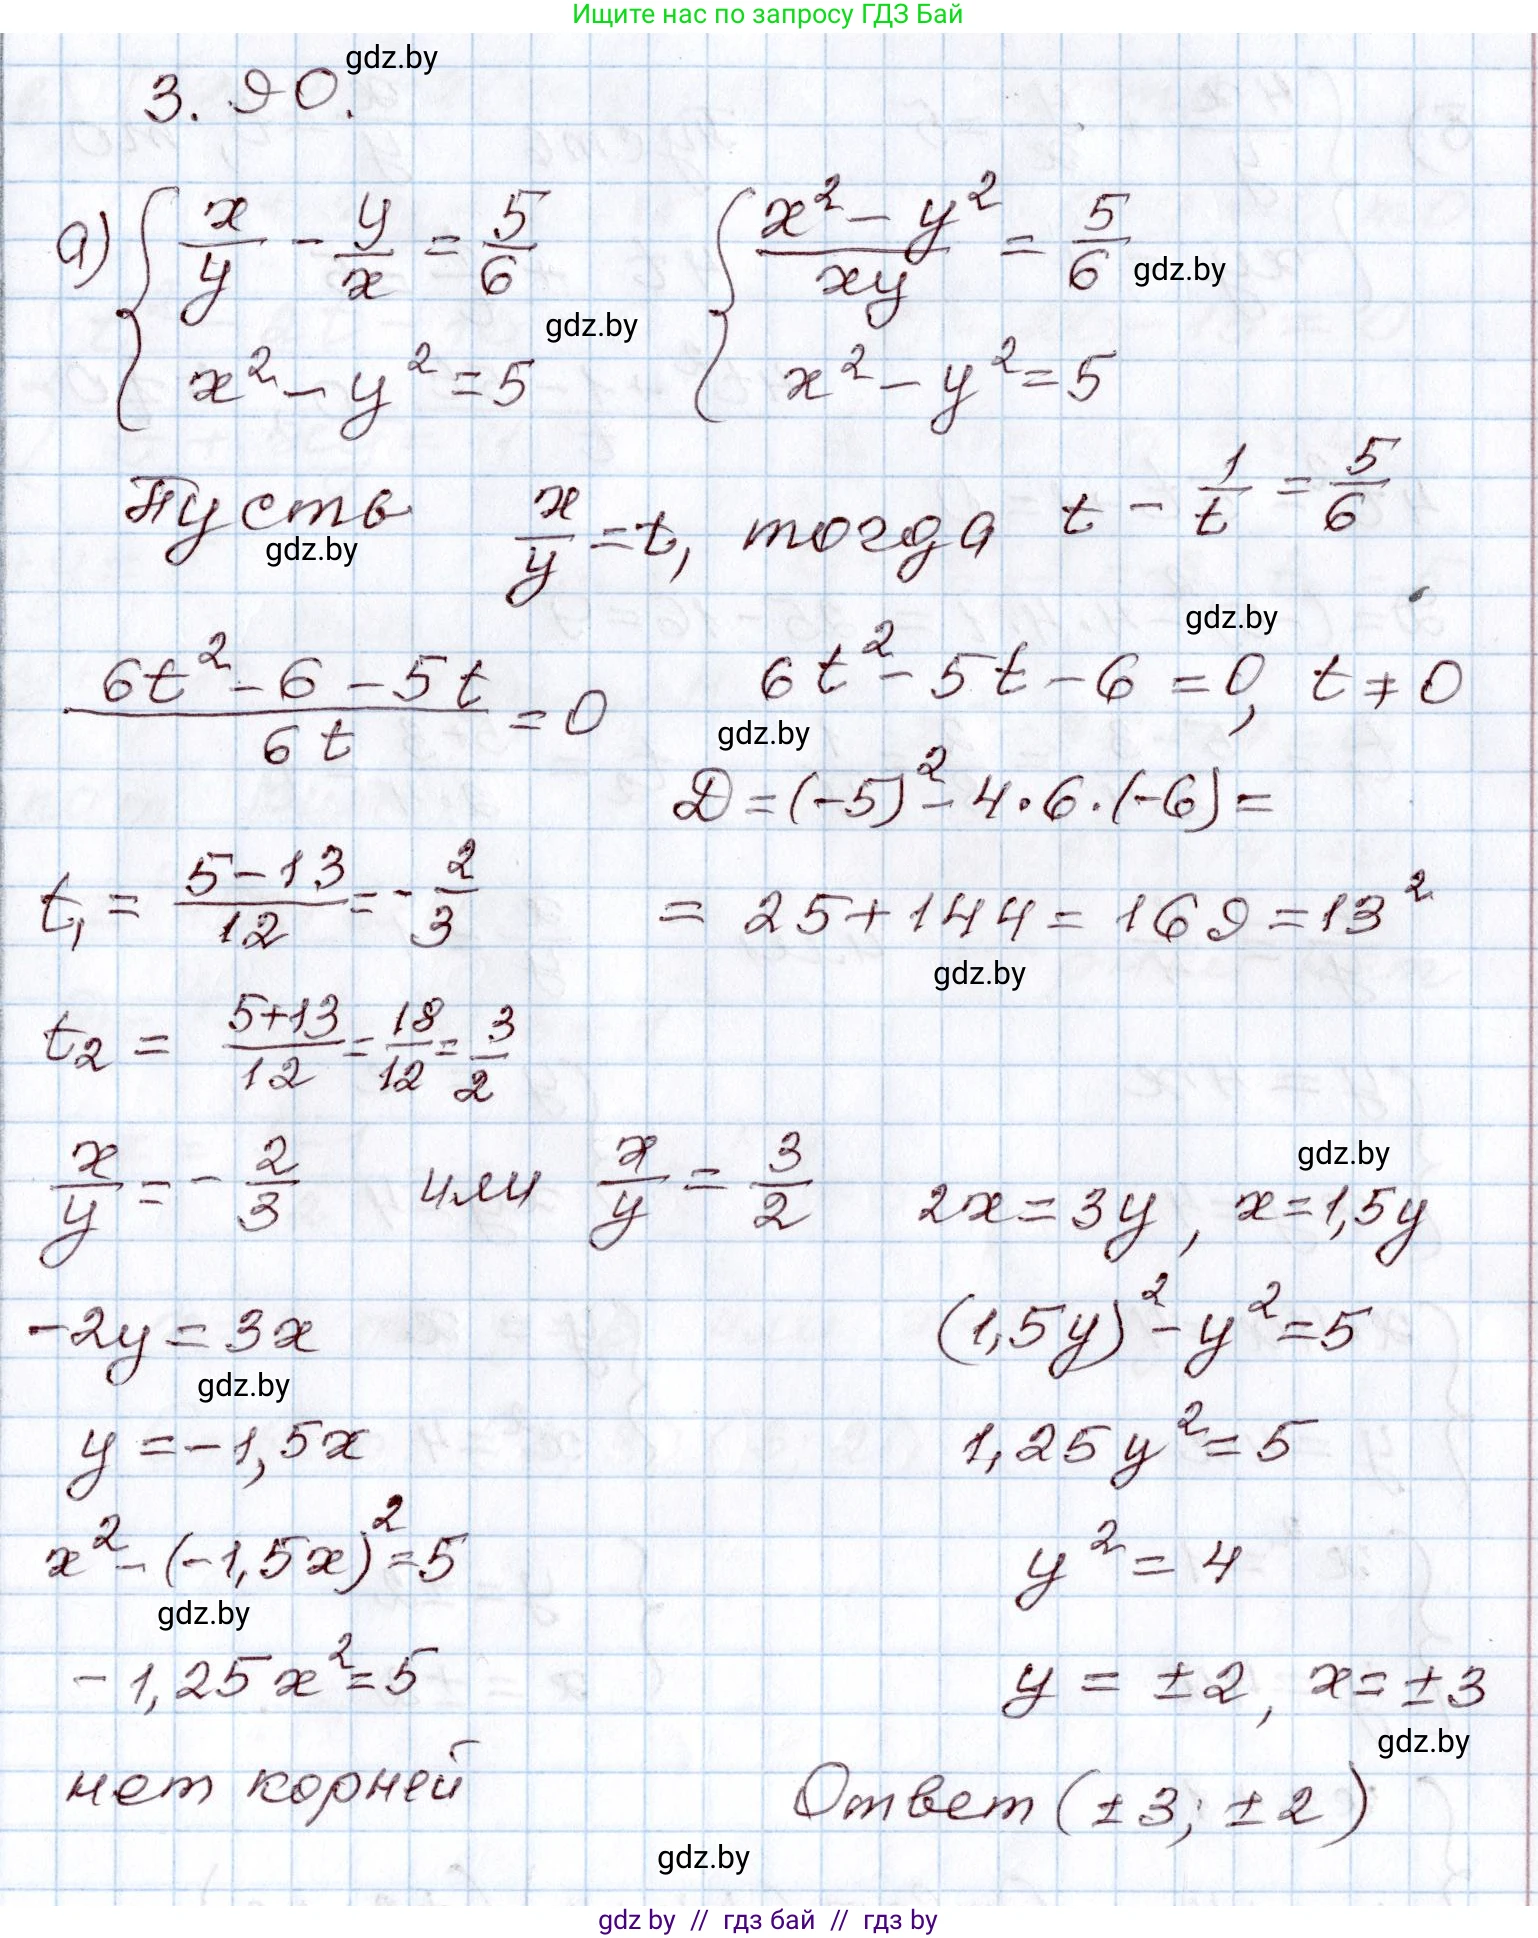 Ищите нас по запросу ГДЗ Бай
gdz.by
3.90.
а) { x/y - y/x = 5/6 { (x² - y²)/(xy) = 5/6
gdz.by
gdz.by
x² - y² = 5 x² - y² = 5
Пусть x/y = t, тогда t - 1/t = 5/6
gdz.by
gdz.by
(6t² - 6 - 5t)/(6t) = 0 6t² - 5t - 6 = 0, t ≠ 0
gdz.by
D = (-5)² - 4·6·(-6) =
t₁ = (5-13)/12 = -2/3 = 25 + 144 = 169 = 13²
gdz.by
t₂ = (5+13)/12 = 18/12 = 3/2
gdz.by
x/y = -2/3 или x/y = 3/2 2x = 3y, x = 1,5y
-2y = 3x (1,5y)² - y² = 5
gdz.by
y = -1,5x 1,25y² = 5
x² - (-1,5x)² = 5 y² = 4
gdz.by
-1,25x² = 5 y = ±2, x = ±3
gdz.by
нет корней Ответ (±3; ±2)
gdz.by
gdz by // гдз бай // гдз by